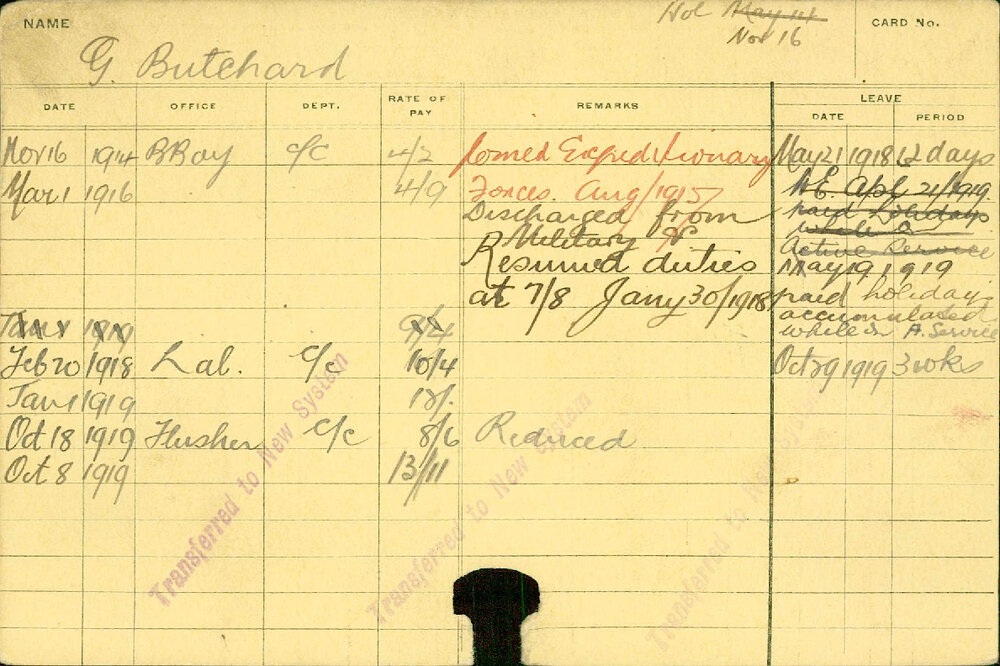 NAME
Hol May 14
Nov 16
CARD No.
G. Butchard
DATE OFFICE DEPT. RATE OF PAY REMARKS LEAVE
DATE PERIOD
Nov 16 1914 BBoy C/C 4/2 Joined Expeditionary May 21 1918 12 days
Mar 1 1916 4/9 Forces. Aug/1915 Apl 21/1919
Discharged from paid holidays
Military & while
Active Service
Resumed duties May 19 1919
at 7/8 Jany 30/1918 paid holidays
accumulated
Jan 1 1919 9/4 while in A. Service
Feb 20 1918 Lab. C/C 10/4 Oct 29 1919 3 wks
Jan 1 1919 12/.
Oct 18 1919 Flusher C/C 8/6 Reduced
Oct 8 1919 13/11
Transferred to New System
Transferred to New System
Transferred to New System